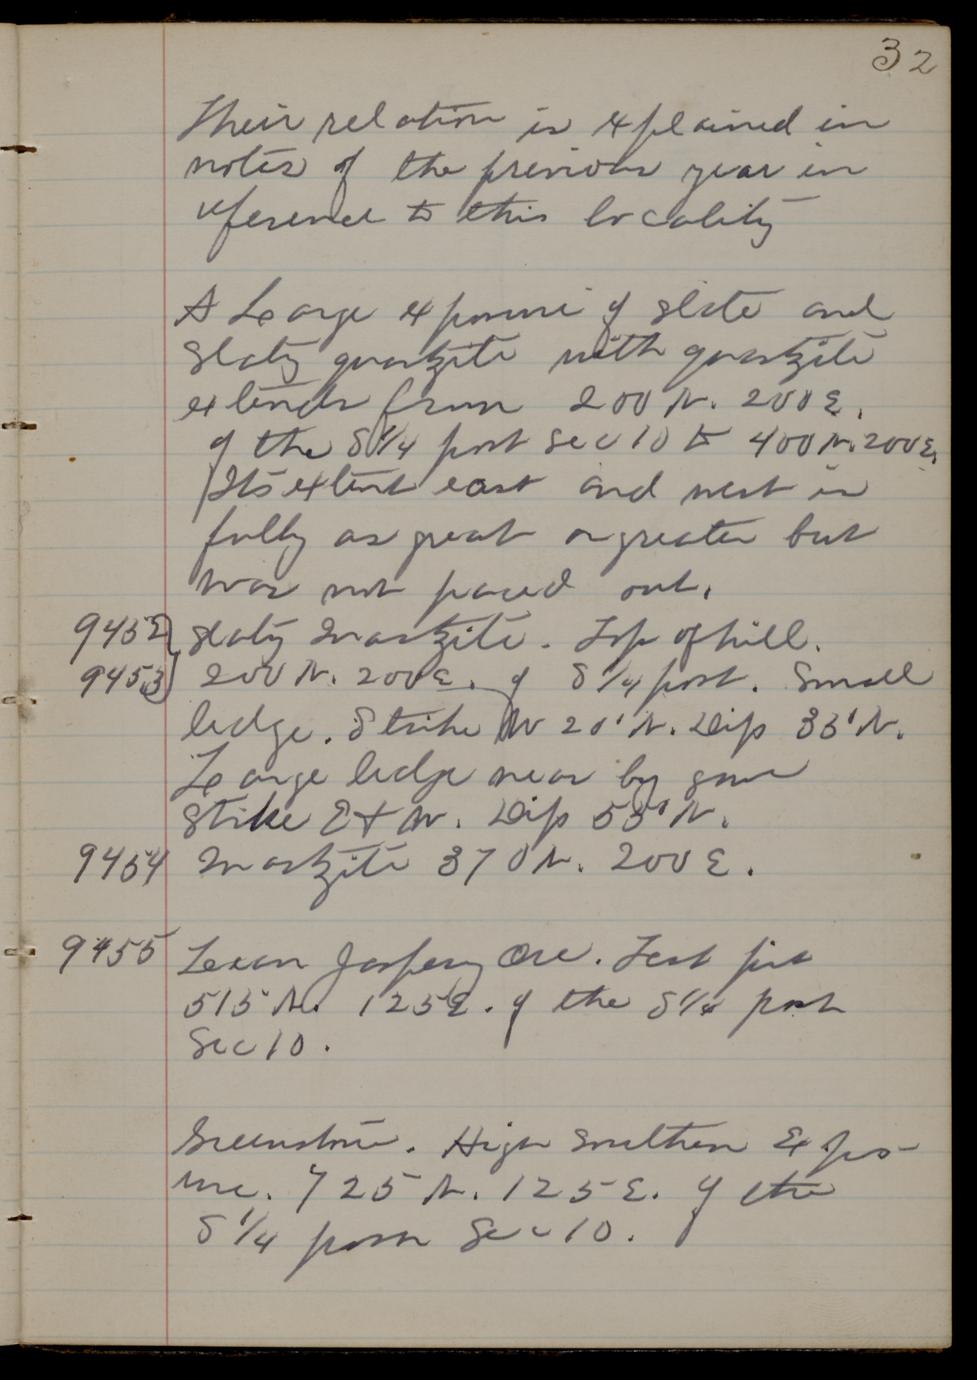 32
Their relation is explained in
notes of the previous year in
reference to this locality
A Large exposure of slate and
Slaty quartzite with quartzite
extends from 200 N. 200 E.
of the S 1/4 post Sec 10 to 400 N. 200 E.
Its extent east and west is
fully as great or greater but
was not paced out.
9452 Slaty Quartzite. Top of hill.
9453 200 N. 200 E. of S 1/4 post. Small
ledge. Strike W 20° N. Dip 33° N.
Large ledge near by gave
Strike E + W. Dip 55° N.
9454 Quartzite 370 N. 200 E.
9455 Lean Jaspery Ore. Test pit
515 N. 125 E. of the S 1/4 post
Sec 10.
Greenstone. High Southern Expo-
sure. 725 N. 125 E. of the
S 1/4 post Sec 10.